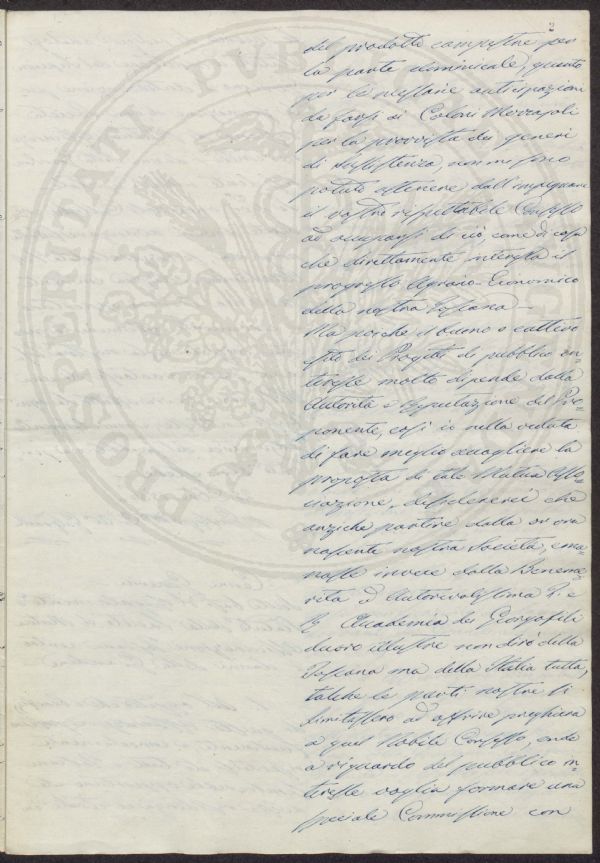 2
del prodotto campestre per
la parte dominicale, quanto
per le necessarie anticipazioni
da farsi ai Coloni Mezzajoli
per la provvista dei generi
di sussistenza, non mi sono
potuto astenere dall'impegnare
il vostro rispettabile Consesso
ad occuparsi di ciò, come di cosa
che direttamente interessa il
progresso Agrario-Economico
della nostra Toscana —
Ma perchè il buono o cattivo
esito dei Progetti di pubblico in-
teresse molto dipende dalla
Autorità e Reputazione del Pro-
ponente, così io nella veduta
di fare meglio accogliere la
proposta di tale Mutua Asso-
ciazione, desidererei che
anzichè partire dalla or ora
nascente nostra Società, ema-
nasse invece dalla Beneme-
rita ed Autorevolissima I. e
R. Accademia dei Georgofili
decoro illustre non dirò della
Toscana ma della Italia tutta,
talchè le parti nostre si
limitassero ad offrire preghiera
a quel Nobile Consesso, onde
a riguardo del pubblico in-
teresse voglia formare una
speciale Commissione con
PROSPERITATI PUB